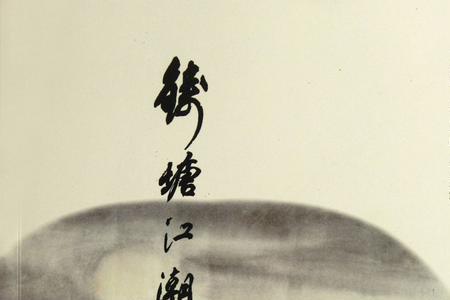 錢塘江潮